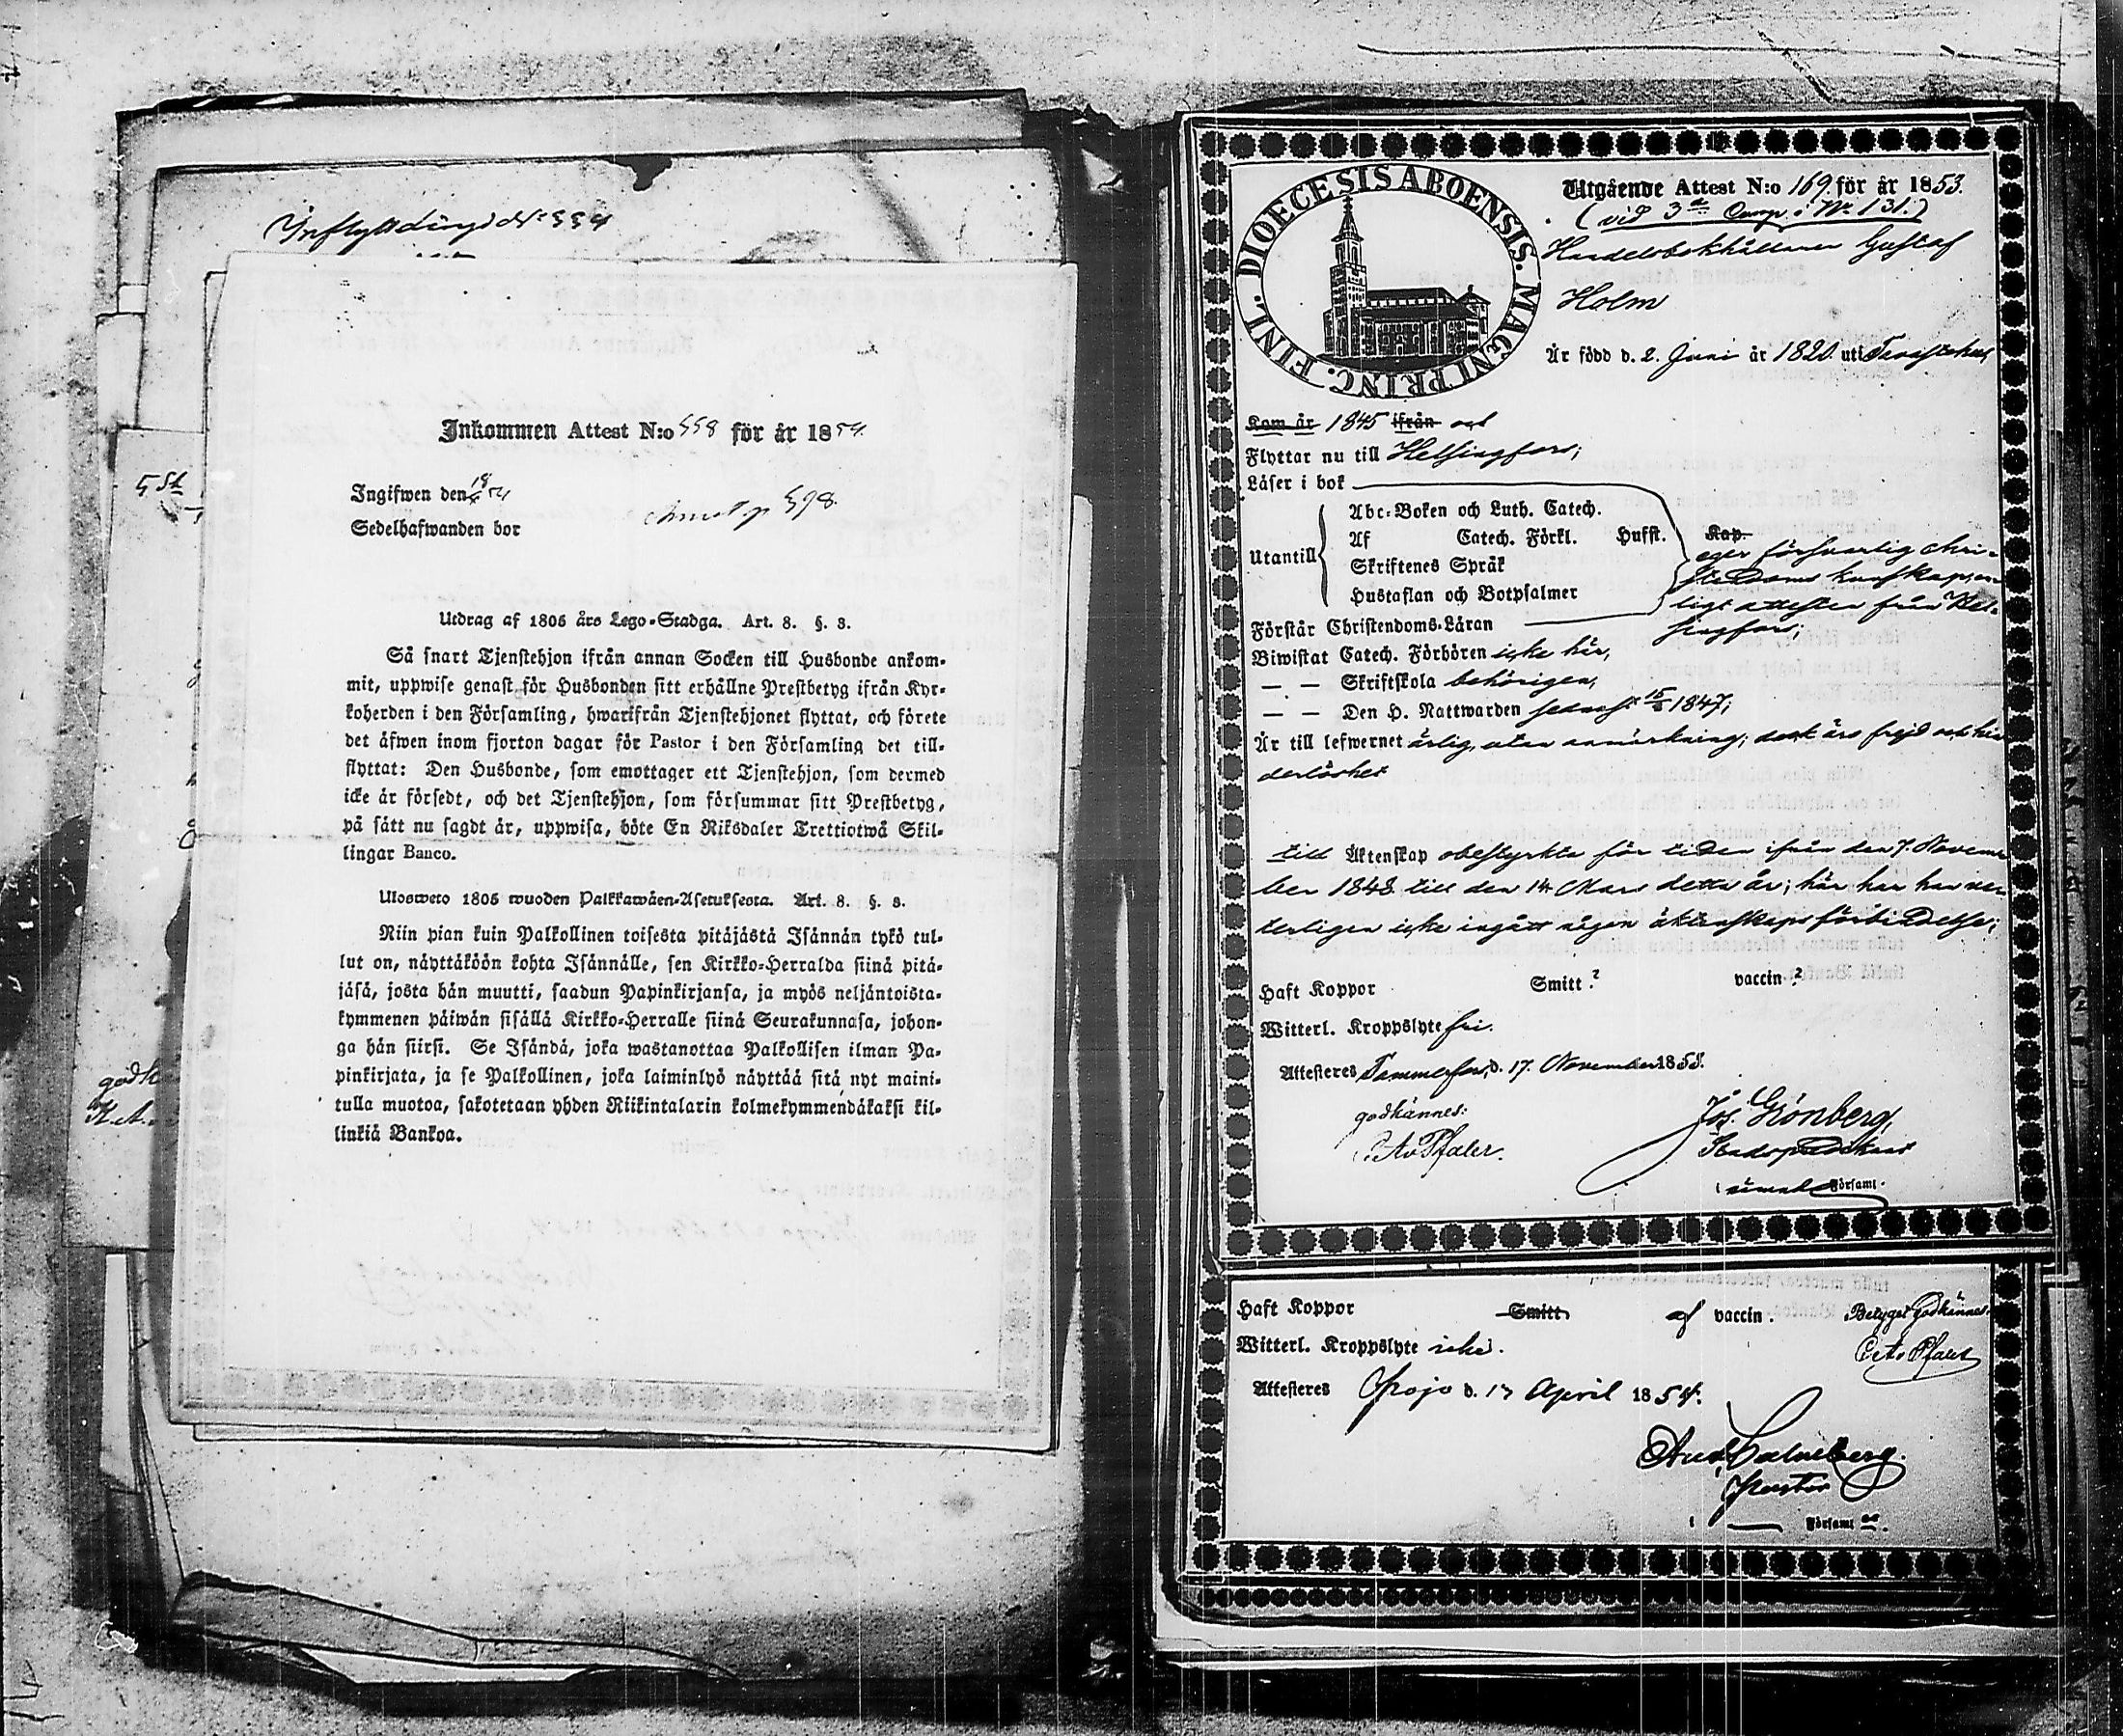 Inflyttningsbet
Inkommen Attest N:o 558 för år 1854.
Ingifwen den
Sedelhafwanden bor
598.
Utdrag af 1805 års Lego-Stadga. Art. 8. §. 8.
Så snart Tjenstehjon ifrån annan Socken till Husbonde ankom-
mit, uppwise genast för Husbonden sitt erhållne Prestbetyg ifrån Kyr-
koherden i den Församling, hwarifrån Tjenstehjonet flyttat, och förete
det åfwen inom fjorton dagar för Pastor i den Församling det till-
flyttat: Den Husbonde, som emottager ett Tjenstehjon, som dermed
icke är försedt, och det Tjenstehjon, som försummar sitt Prestbetyg,
på sått nu sagdt är, uppwisa, böte En Riksdaler Trettiotwå Skil-
lingar Banco.
Ulosweto 1805 wuoden Palkkawäen-Asetuksesta. Art. 8. §. 8.
Niin pian kuin Palkollinen toisesta pitäjästä Isännän tykö tul-
lut on, näyttäköön kohta Isännälle, sen Kirkko-Herralda siinä pitä-
jäsä, josta hän muutti, saadun Papinkirjansa, ja myös neljäntoista-
kymmenen päiwän sisällä Kirkko-Herralle siinä Seurakunnasa, johon-
ga hän siirsi. Se Isändä, joka wastanottaa Palkollisen ilman Pa-
pinkirjata, ja se Palkollinen, joka laiminlyö näyttää sitä nyt maini-
tulla muotoa, sakotetaan yhden Riikintalarin kolmekymmendäkaksi kil-
linkiä Bankoa.
godk
FINL. DIOECESIS ABOENSIS. MAGNI PRINC.
Utgående Attest N:o 169. för år 1853.
(vid 3:a Comp. i No 131.)
Handelsbokhållaren Gustaf
Holm
Är född d. 2. Juni år 1820. uti Tavastehus
Kom år 1845 ifrån och
Flyttar nu till Helsingfors;
Läser i bok
Utantill
Abc-Boken och Luth. Catech.
Af Catech. Förkl. Hufst. Kap.
Skriftenes Språk
Hustaflan och Botpsalmer
eger försvarlig chri-
stendoms kunskap, en-
ligt attesten från Hel-
singfors;
Förstår Christendoms-Läran
Biwistat Catech. Förhören icke här,
— — Skriftskola behörigen,
— — Den H. Nattwarden sednast 15/ 1847;
Är till lefwernet ärlig, utan anmärkning; dock års frejd och hin
derlöshet
till Äktenskap obestyrkta för tiden ifrån den 7. Novem
ber 1848 till den 14 Mars detta år; här har han vet
terligen icke ingått någon äktenskapsförbindelse;
Haft Koppor Smitt? vaccin?
Witterl. Kroppslyte fri.
Attesteras Tammerfors d. 17. November 1853.
godkännes:
C. Av Pfaler.
Jos. Grönberg,
Stadspredikant
Församl.
Haft Koppor Smitt af vaccin. Betyget godkännes.
C Av Pfaler
Witterl. Kroppslyte icke.
Attesteras Pojo d. 17 April 1854.
Pastor
i Församl